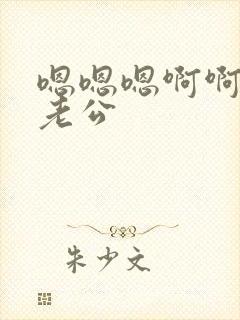 嗯嗯嗯啊啊
老公
朱少文